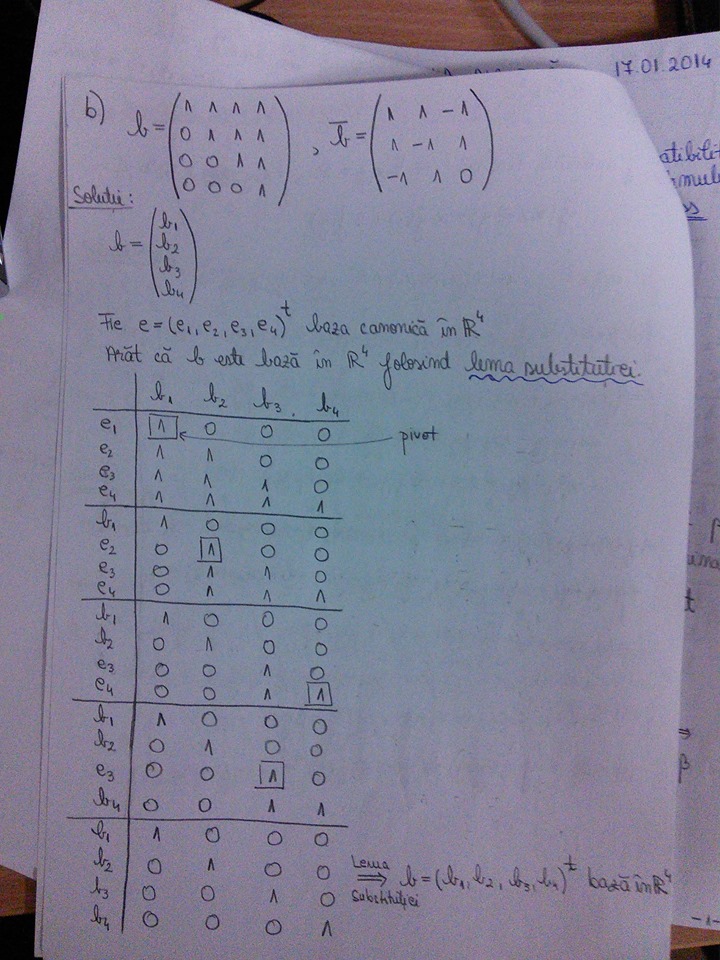 17.01.2014
b) b = ( 1 1 1 1 ) , b̄ = ( 1 1 -1 )
( 0 1 1 1 ) ( 1 -1 1 )
( 0 0 1 1 ) ( -1 1 0 )
( 0 0 0 1 )
Soluții:
b = ( b1
b2
b3
b4 )
Fie e = (e1, e2, e3, e4)^t baza canonică în ℝ^4
Arăt că b este bază în ℝ^4 folosind lema substituției.
b1 b2 b3 b4
e1 1 0 0 0 pivot
e2 1 1 0 0
e3 1 1 1 0
e4 1 1 1 1
b1 1 0 0 0
e2 0 1 0 0
e3 0 1 1 0
e4 0 1 1 1
b1 1 0 0 0
b2 0 1 0 0
e3 0 0 1 0
e4 0 0 1 1
b1 1 0 0 0
b2 0 1 0 0
e3 0 0 1 0
b4 0 0 1 1
b1 1 0 0 0
b2 0 1 0 0
b3 0 0 1 0
b4 0 0 0 1
Lema
⇒ b = (b1, b2, b3, b4)^t bază în ℝ^4
Substituției